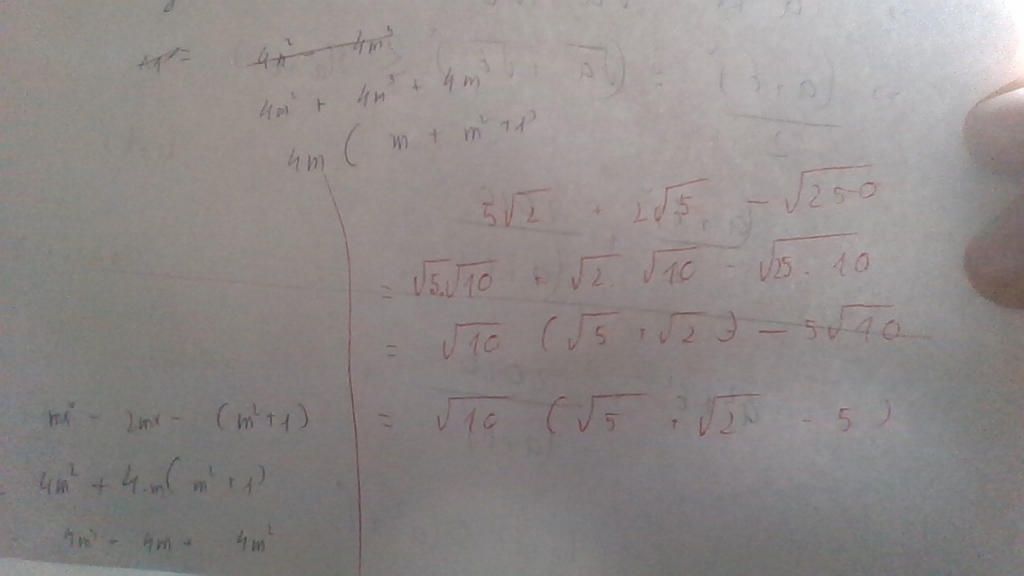 4m² + 4m³ + 4m
4m ( m + m² + 1)
5√2 + 2√5 - √250
= √5.√10 + √2. √10 - √25. 10
= √10 (√5 + √2) - 5√10
= √10 (√5 + √2 - 5)
mx² - 2mx - (m²+1)
4m² + 4.m( m² + 1)
4m³ + 4m + 4m²